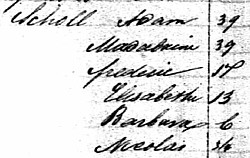 Scholl Adam 39
Madalaine 39
frederic 17
Elisabeth 13
Barbara 6
Nicolas